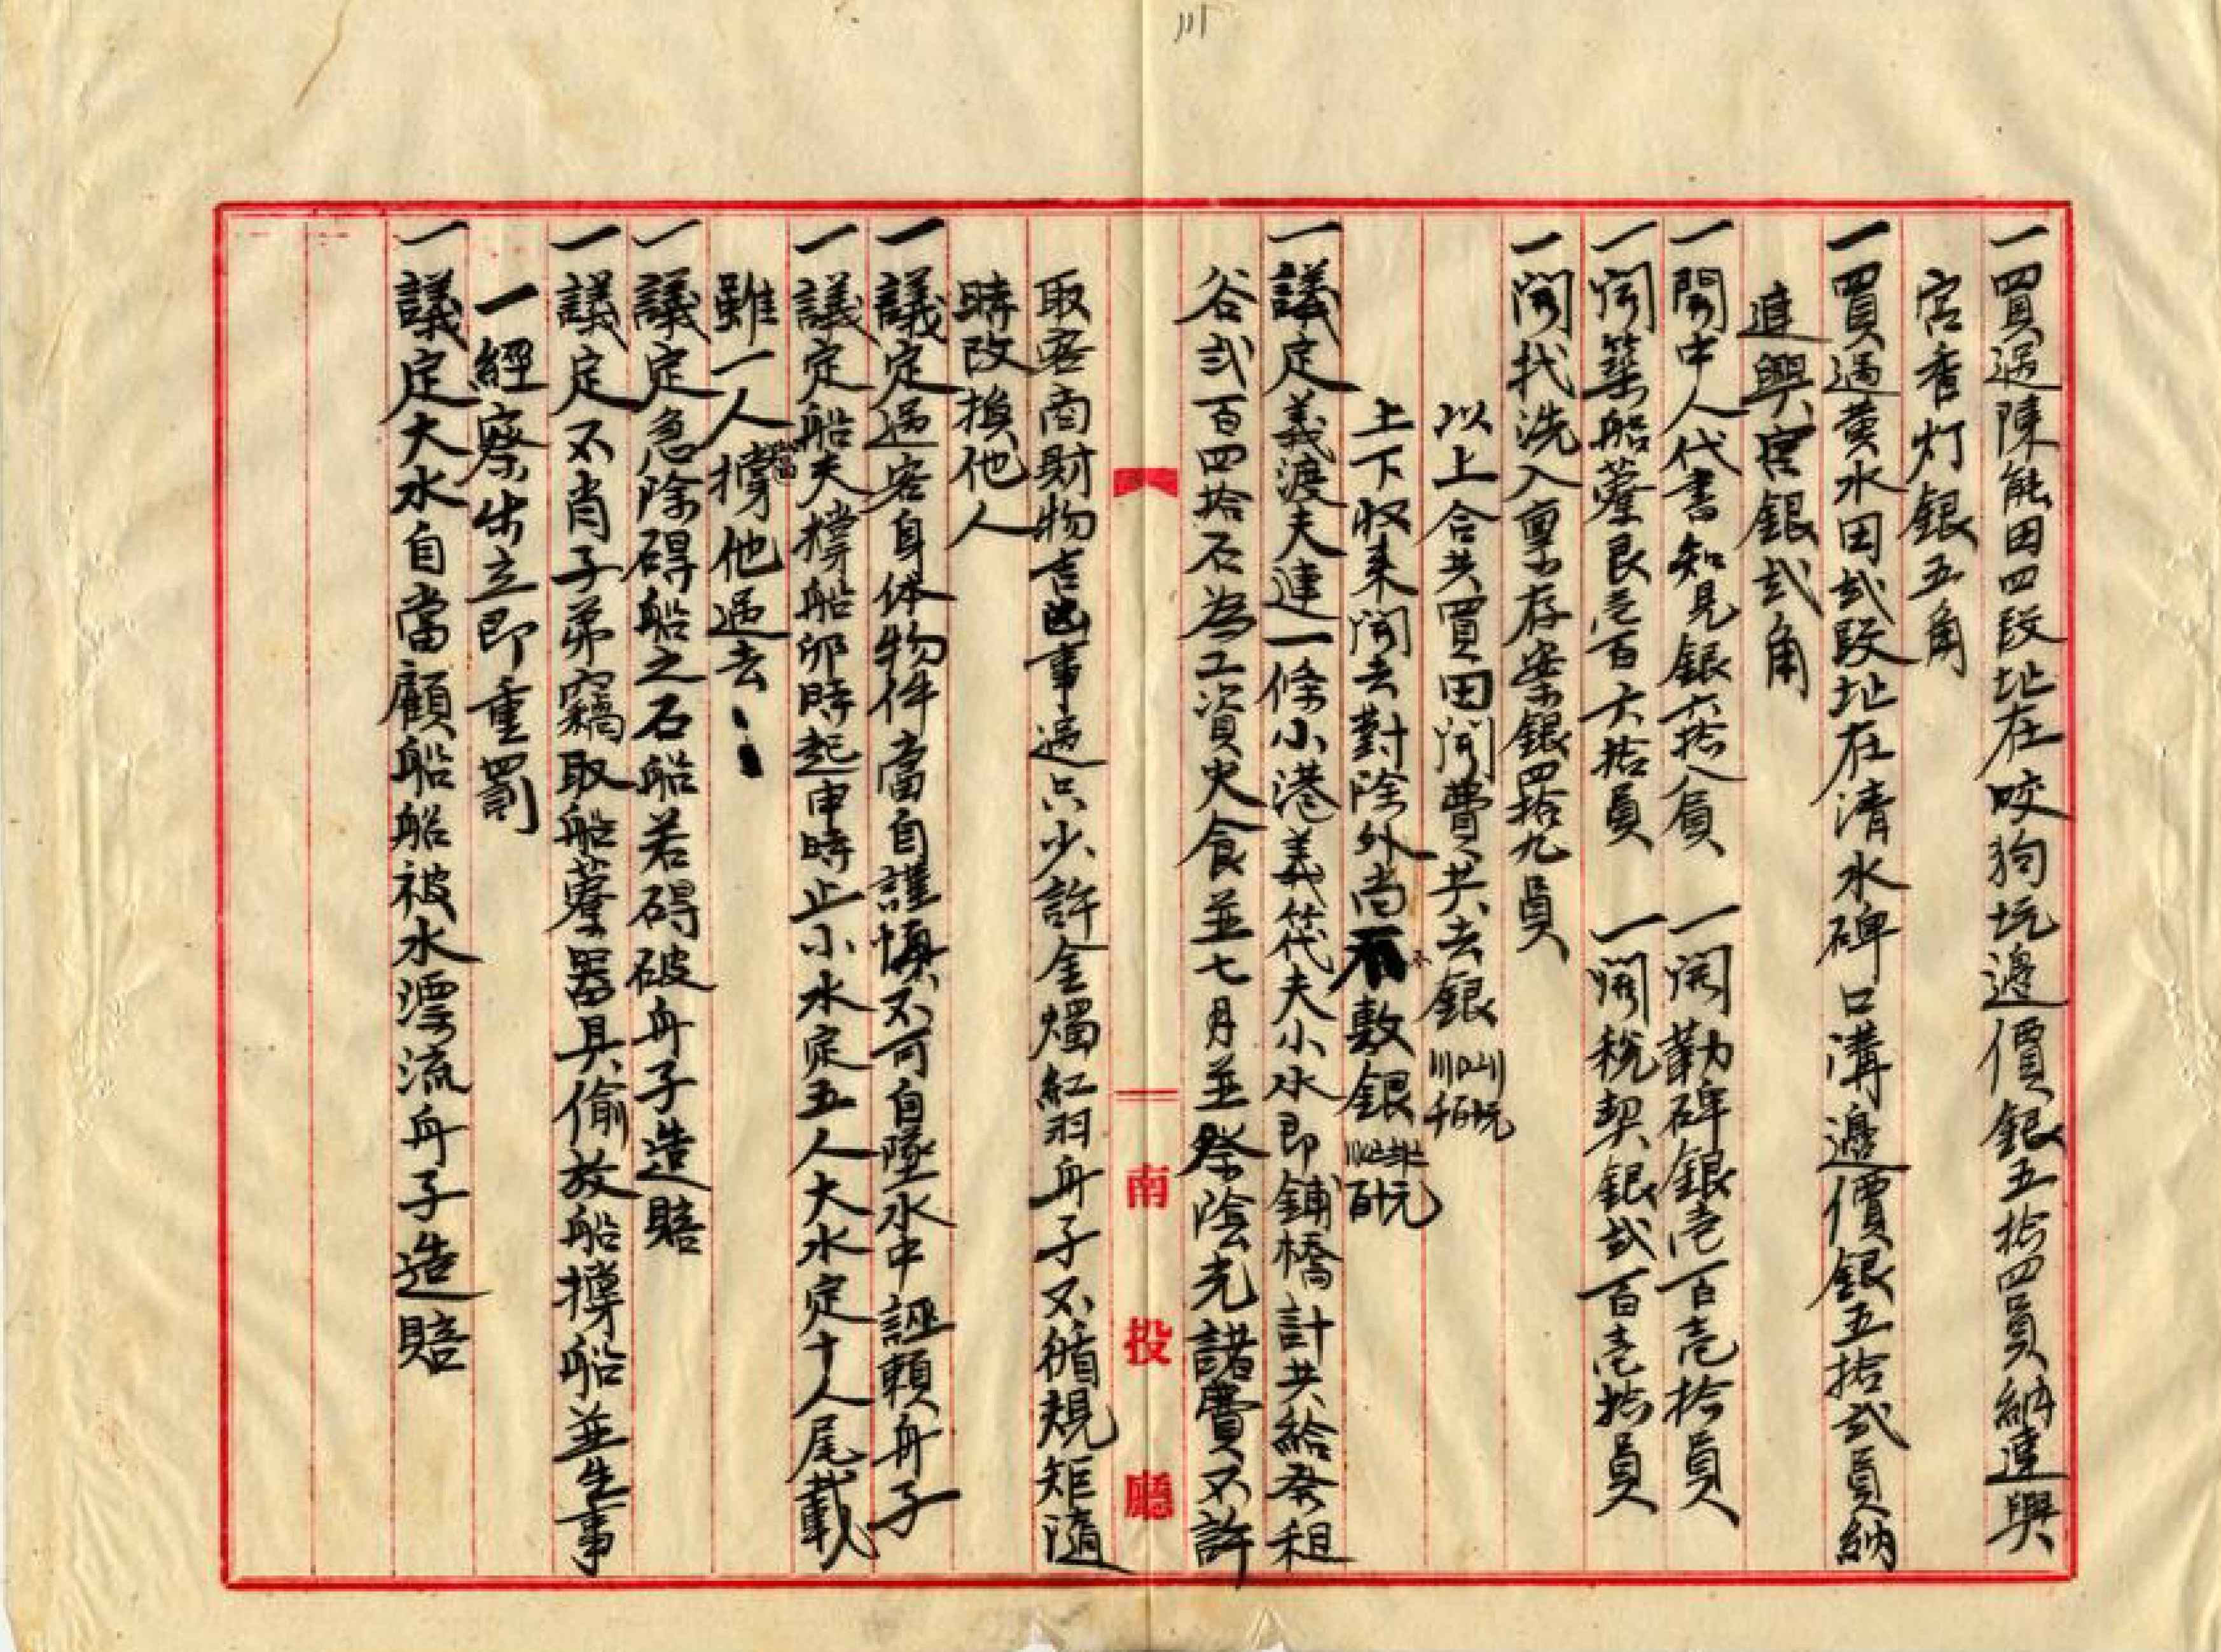 一買過陳能田四段址在咬狗坑邊價銀五拾四員納連興
宮香灯銀五角
一買過黃水田弍段址在清水碑口溝邊價銀五拾弍員納
連興宮銀弍角
一開中人代書知見銀六拾八員 一開勒碑銀壱百壱拾員
一開築船藔艮壱百六拾員 一開稅契銀弍百壱拾員
一開找洗入稟存案銀四拾九員
以上合共買田開費共去銀
上下收来開去對除外尚不敷銀
一議定義渡夫連一條小港義筏夫小水即鋪橋計共給夲租
谷弍百四拾石為工資火食並七月並祭陰光諸費不許
取客商財物吉凶事過只少許金燭紅羽舟子不循規矩隨
時改換他人
一議定過客身体物件當自謹慎不可自墜水中誣賴舟子
一議定船夫撐船卯時起申時止小水定五人大水定十人尾載
雖一人當撐他過去
一議定急除碍船之石船若碍破舟子造賠
一議定不肖子弟竊取船藔器具偷放船撐船並生事
一經察出立即重罰
一議定大水自當顧船船被水漂流舟子造賠
南投廳